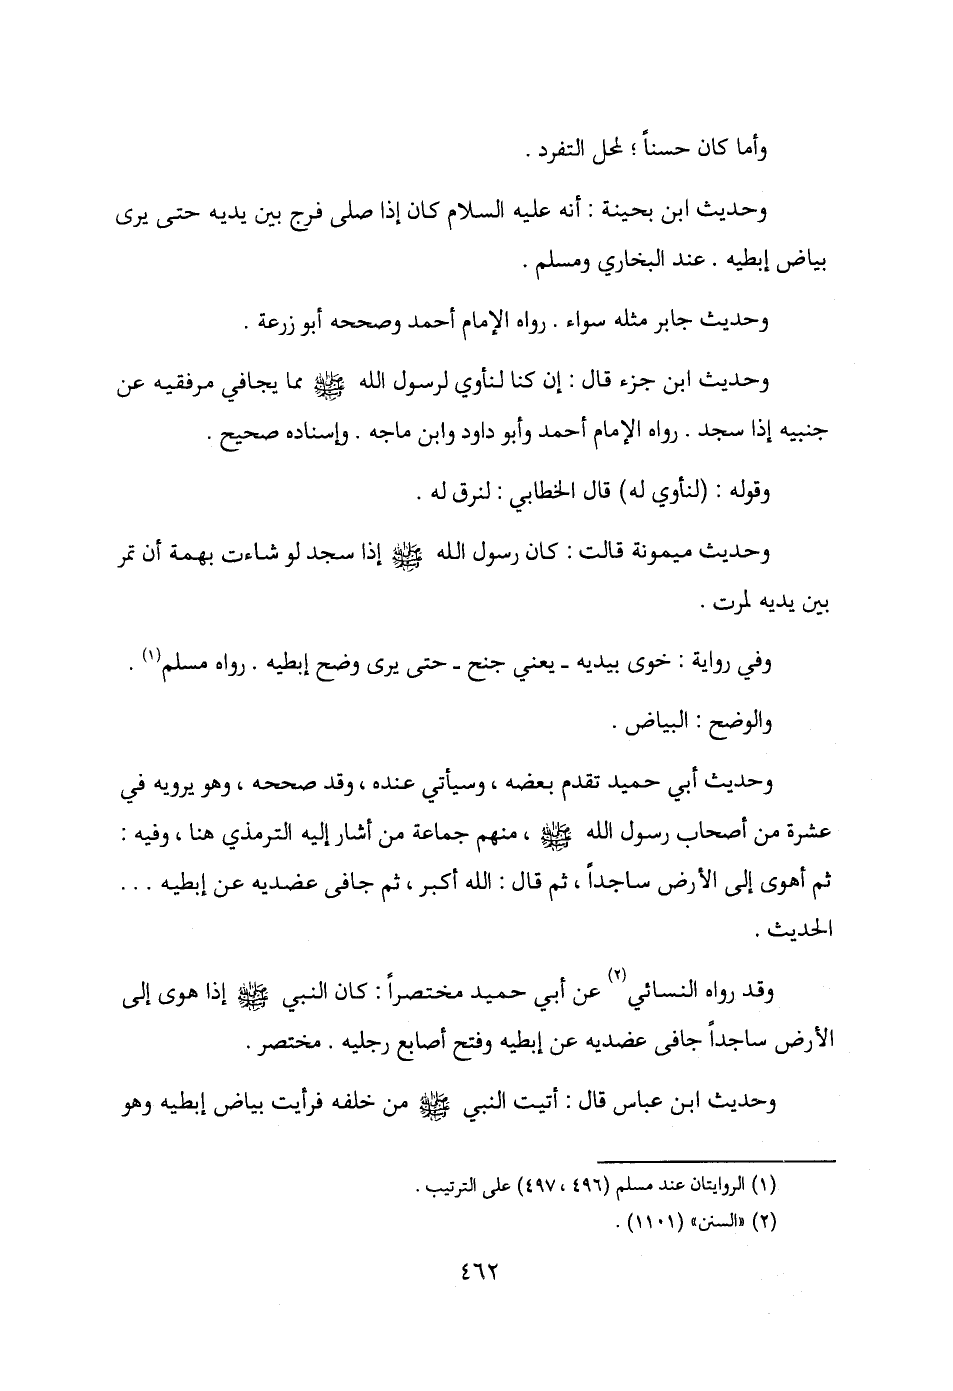 وأما كان حسناً ؛ لمحل التفرد .
وحديث ابن بحينة : أنه عليه السلام كان إذا صلى فرج بين يديه حتى يرى
بياض إبطيه . عند البخاري ومسلم .
وحديث جابر مثله سواء . رواه الإمام أحمد وصححه أبو زرعة .
وحديث ابن جزء قال : إن كنا لنأوي لرسول الله ﷺ مما يجافي مرفقيه عن
جنبيه إذا سجد . رواه الإمام أحمد وأبو داود وابن ماجه . وإسناده صحيح .
وقوله : (لنأوي له) قال الخطابي : لنرق له .
وحديث ميمونة قالت : كان رسول الله ﷺ إذا سجد لو شاءت بهمة أن تمر
بين يديه لمرت .
وفي رواية : خوى بيديه ـ يعني جنح ـ حتى يرى وضح إبطيه . رواه مسلم(١) .
والوضح : البياض .
وحديث أبي حميد تقدم بعضه ، وسيأتي عنده ، وقد صححه ، وهو يرويه في
عشرة من أصحاب رسول الله ﷺ ، منهم جماعة من أشار إليه الترمذي هنا ، وفيه :
ثم أهوى إلى الأرض ساجداً ، ثم قال : الله أكبر ، ثم جافى عضديه عن إبطيه ...
الحديث .
وقد رواه النسائي(٢) عن أبي حميد مختصراً : كان النبي ﷺ إذا هوى إلى
الأرض ساجداً جافى عضديه عن إبطيه وفتح أصابع رجليه . مختصر .
وحديث ابن عباس قال : أتيت النبي ﷺ من خلفه فرأيت بياض إبطيه وهو
(١) الروايتان عند مسلم (٤٩٦ ، ٤٩٧) على الترتيب .
(٢) «السنن» (١١٠١) .
٤٦٢